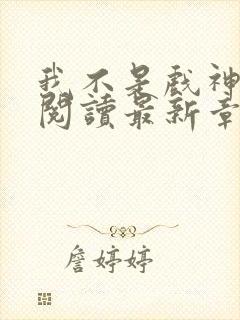 我不是戲神
閱讀最新章
詹婷婷